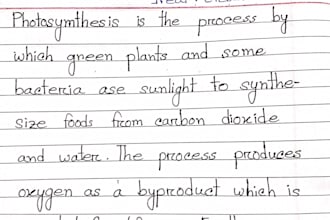 Photosymthesis is the process by
which green plants and some
bacteria ase sunlight to synthe-
size foods from carbon dioxide
and water. The process produces
oxygen as a byproduct which is